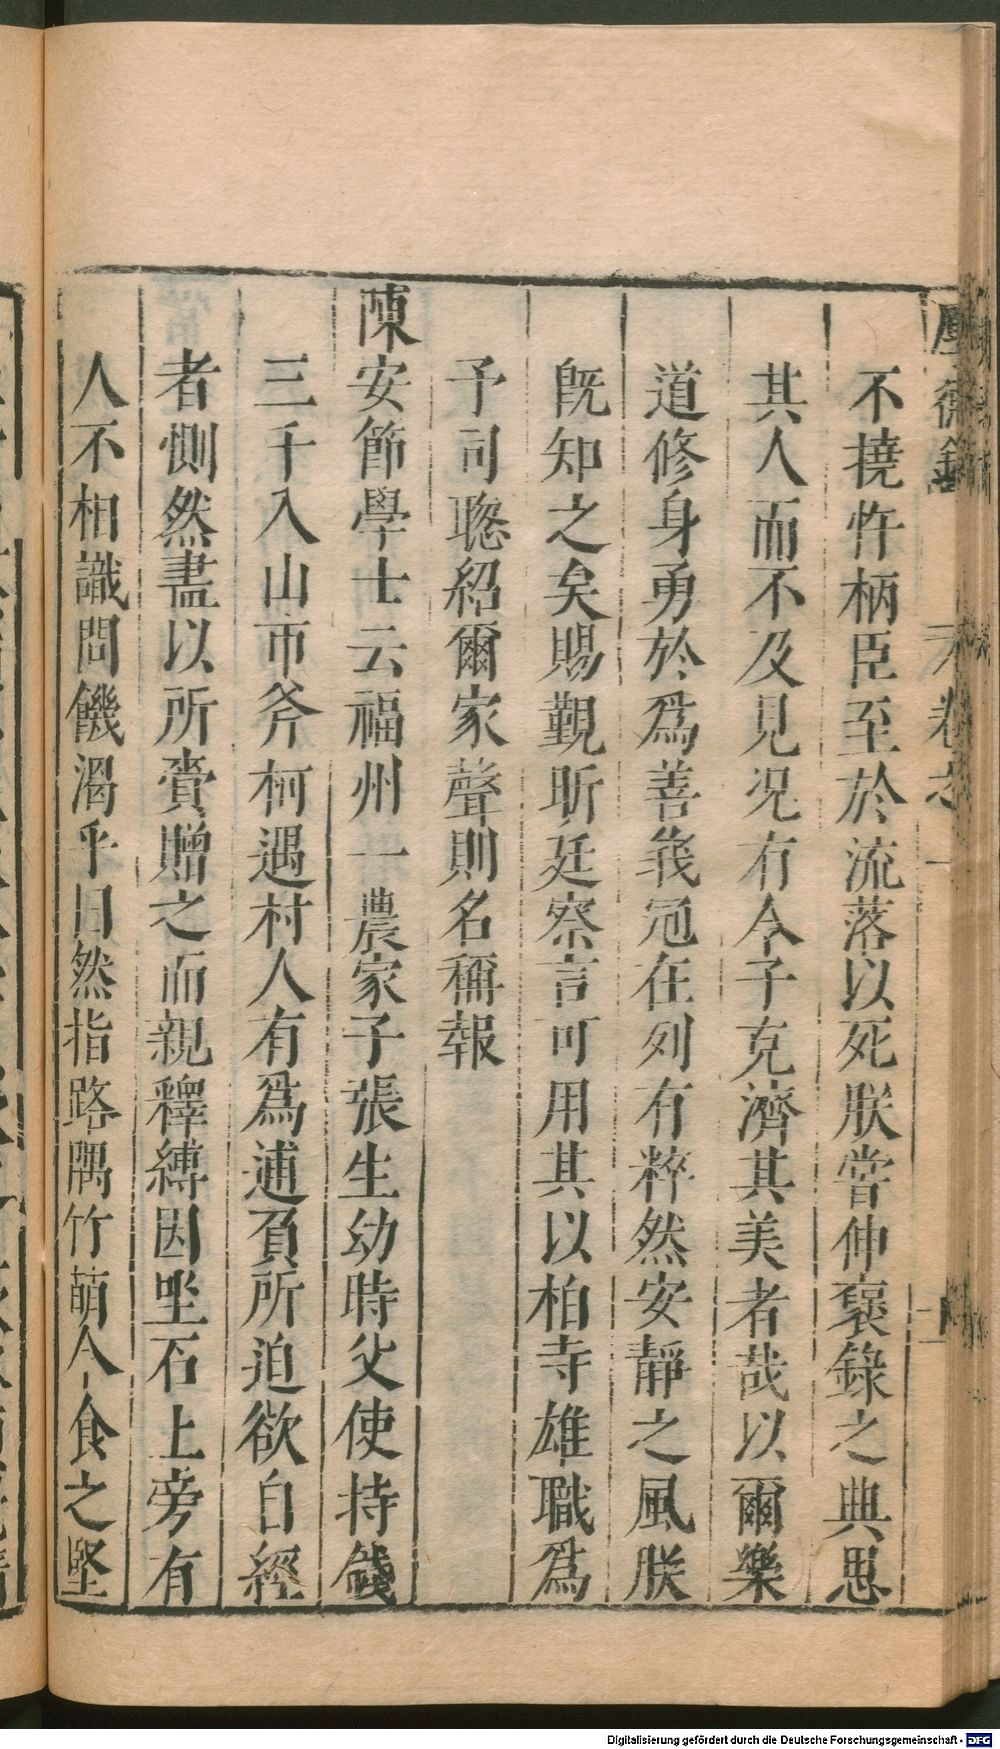 不撓忤柄臣至於流落以死朕嘗伸褒錄之典思
其人而不及見况有令子克濟其美者哉以爾樂
道修身勇於爲善義冠在列有粹然安靜之風朕
旣知之矣賜觀昕廷察言可用其以柏寺雄職爲
予司聦紹爾家聲則名稱報
陳安節學士云福州一農家子張生幼時父使持錢
三千入山市斧柯遇村人有爲逋負所迫欲自經
者惻然盡以所賫贈之而親釋縛因坐石上旁有
人不相識問饑渴乎曰然指路隅竹萌令食之堅
Digitalisierung gefördert durch die Deutsche Forschungsgemeinschaft - DFG